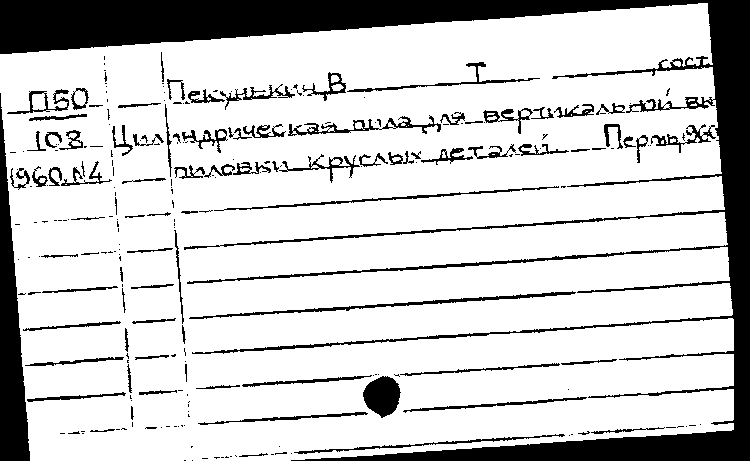 П50 Пекунькин, В Т , сост.
108 Цилиндрическая пила для вертикальной вы
1960.N4 пиловки круглых деталей. Пермь, 1960